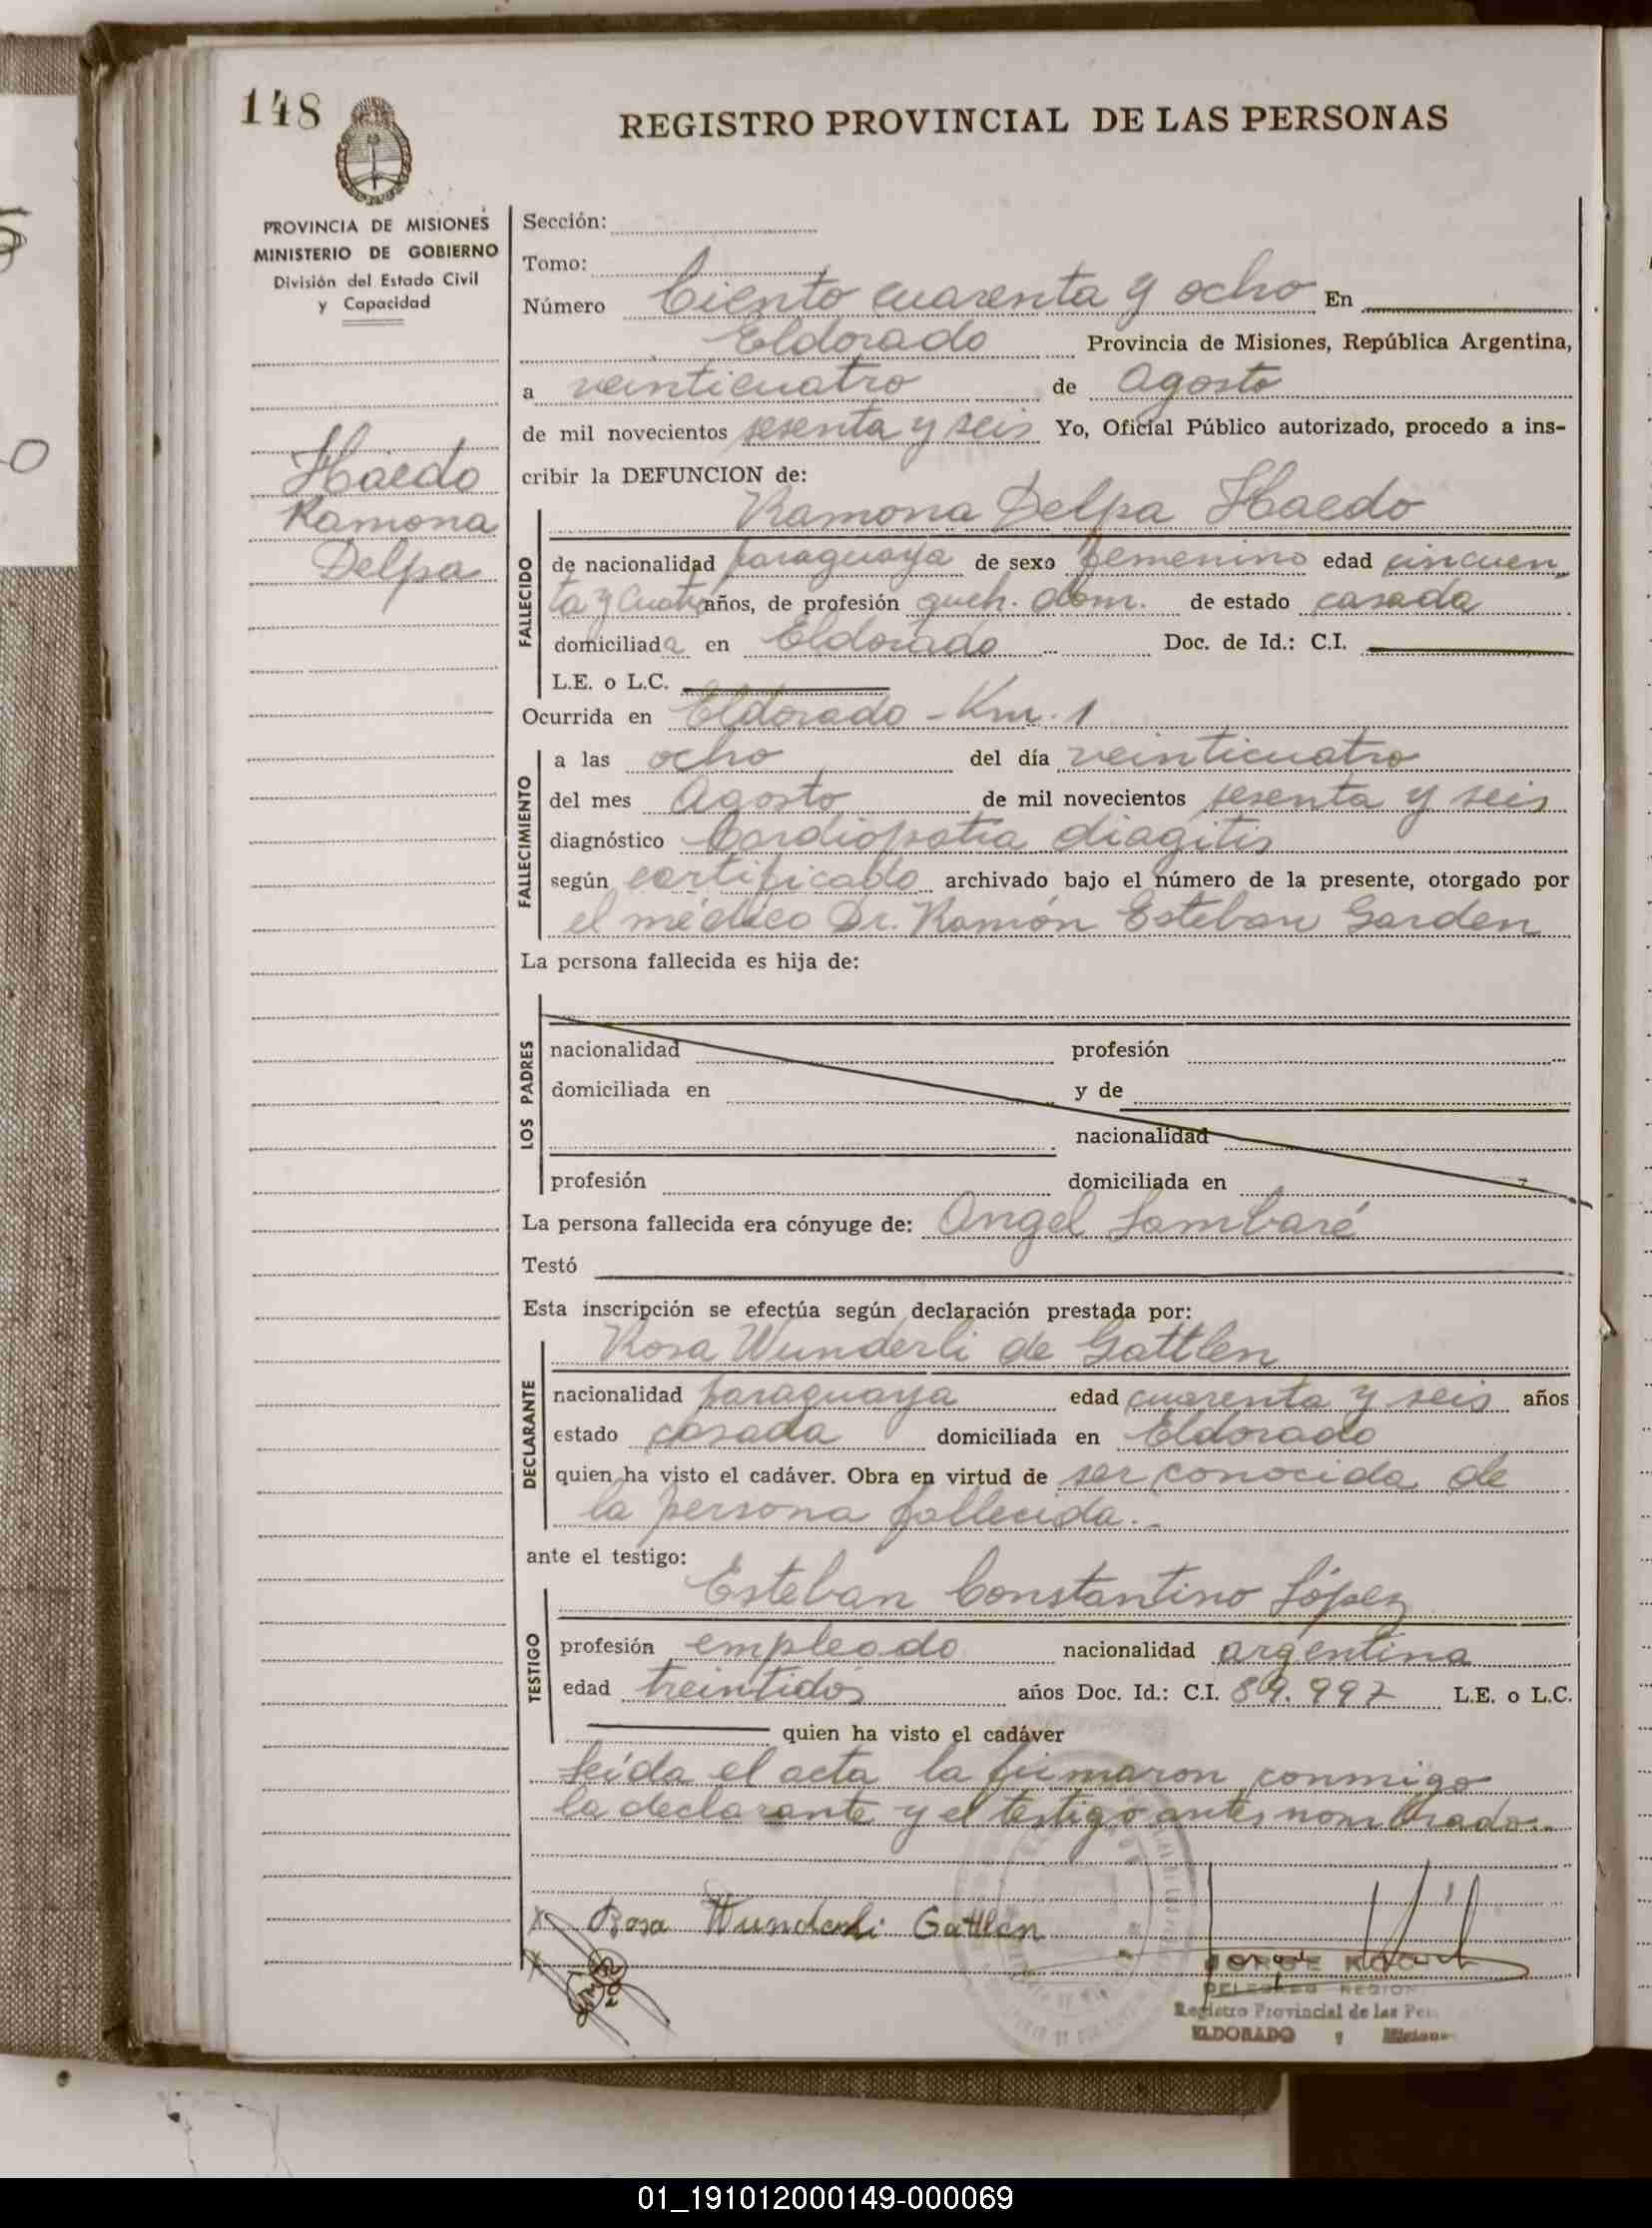 148
REGISTRO PROVINCIAL DE LAS PERSONAS
PROVINCIA DE MISIONES
MINISTERIO DE GOBIERNO
División del Estado Civil
y Capacidad
Haedo
Ramona
Delpa
Sección:
Tomo:
Número Ciento cuarenta y ocho En
Eldorado Provincia de Misiones, República Argentina,
a veinticuatro de Agosto
de mil novecientos sesenta y seis Yo, Oficial Público autorizado, procedo a ins-
cribir la DEFUNCION de:
Ramona Delpa Haedo
FALLECIDO
de nacionalidad paraguaya de sexo femenino edad cincuen
ta y cuatro años, de profesión queh. dom. de estado casada
domiciliada en Eldorado Doc. de Id.: C.I.
L.E. o L.C.
Ocurrida en Eldorado - Km. 1
FALLECIMIENTO
a las ocho del día veinticuatro
del mes Agosto de mil novecientos sesenta y seis
diagnóstico Cardiopatía diagitis
según certificado archivado bajo el número de la presente, otorgado por
el médico Dr. Ramón Esteban Garden
La persona fallecida es hija de:
LOS PADRES
nacionalidad profesión
domiciliada en y de
nacionalidad
profesión domiciliada en
La persona fallecida era cónyuge de: Angel Lambaré
Testó
Esta inscripción se efectúa según declaración prestada por:
Rosa Wunderli de Gattlen
DECLARANTE
nacionalidad paraguaya edad cuarenta y seis años
estado casada domiciliada en Eldorado
quien ha visto el cadáver. Obra en virtud de ser conocida de
la persona fallecida.-
ante el testigo:
Esteban Constantino López
TESTIGO
profesión empleado nacionalidad argentina
edad treintidos años Doc. Id.: C.I. 89.997 L.E. o L.C.
quien ha visto el cadáver
Leída el acta la firmaron conmigo
la declarante y el testigo antes nombrado.-
x Rosa Wunderli Gattlen
x
JORGE
DELEGADO REGION
Registro Provincial de las Per
ELDORADO Misiones
01_191012000149-000069